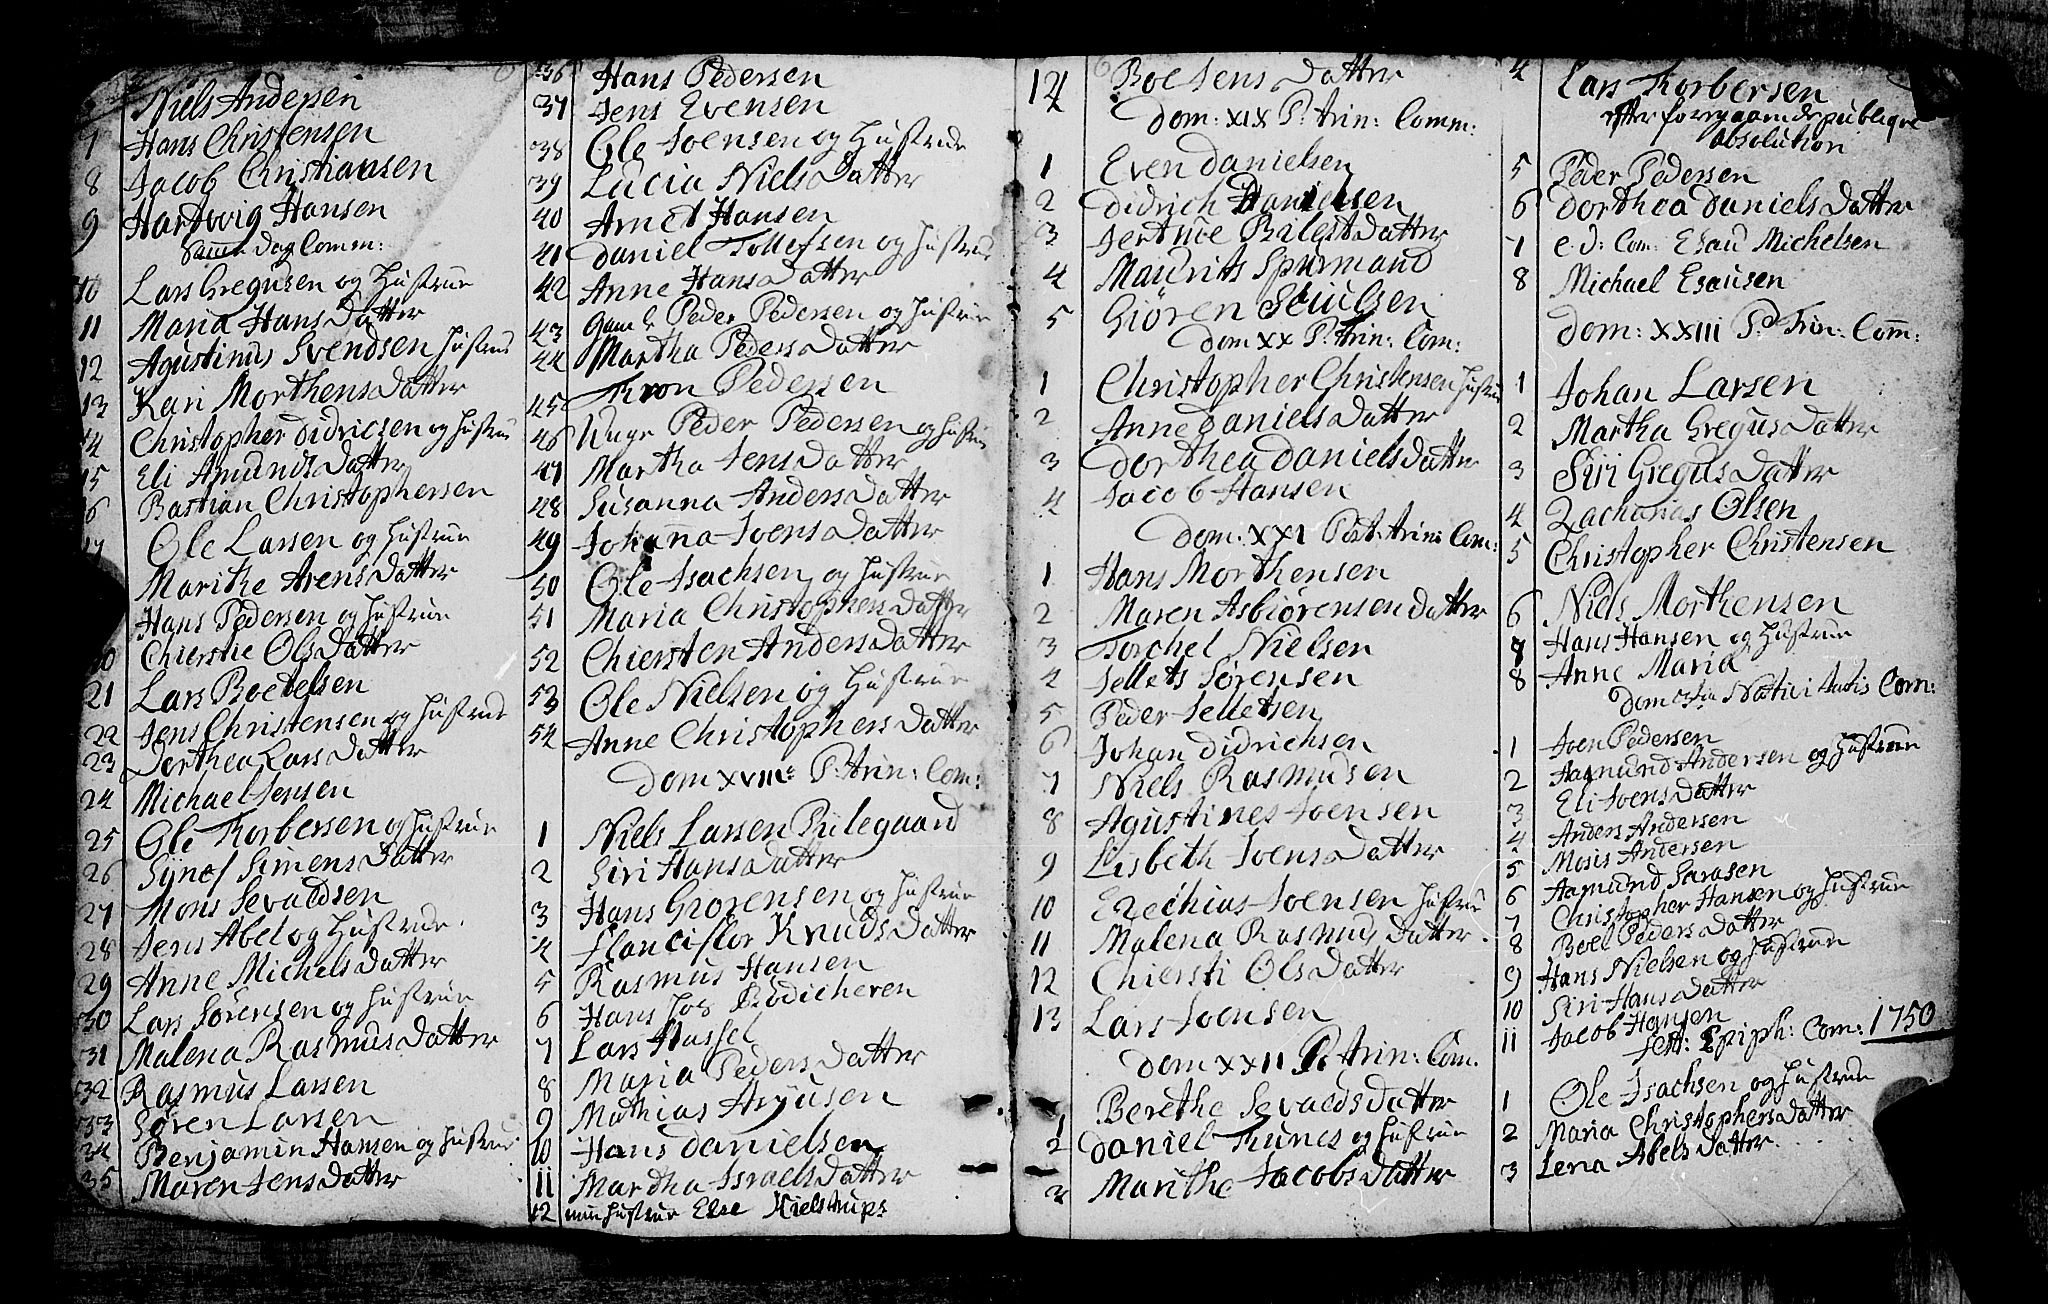 Niels Andersen
7 Hans Christensen
8 Jacob Christiansen
9 Hartvig Hansen
Samme Dag Comm:
10 Lars Gregusen og Hustrue
11 Maria Hans Datter
12 Agustinus Svendsen Hustrue
13 Kari Morthens Datter
14 Christopher Didricsen og Hustrue
15 Eli Amunds Datter
16 Bastian Christophersen
17 Ole Larsen og Hustrue
Marithe Arens Datter
Hans Pedersen og Hustrue
20 Chierstie Ols Datter
21 Lars Boetelsen
22 Jens Christensen og Hustrue
23 Dorthea Lars Datter
24 Michael Jensen
25 Ole Torbersen og Hustrue
26 Synef Simens Datter
27 Mons Sevaldsen
28 Jens Abel og Hustrue
29 Anne Michels Datter
30 Lars Sørensen og Hustrue
31 Malena Rasmus Datter
32 Rasmus Larsen
33 Søren Larsen
34 Benjamin Hansen og Hustrue
35 Maren Jens Datter
36 Hans Pedersen
37 Jens Evensen
38 Ole Joensen og Hustrue
39 Lucia Niels Datter
40 Arnet Hansen
41 Daniel Tollefsen og Hustrue
42 Anne Hans Datter
43 Gaml Peder Pedersen og Hustrue
44 Martha Peders Datter
45 Tron Pedersen
46 Unge Peder Pedersen og Hustrue
47 Martha Jens Datter
48 Susanna Anders Datter
49 Johanna Joens Datter
50 Ole Isachsen og Hustrue
51 Maria Christophers Datter
52 Chiersten Anders Datter
53 Ole Nielsen og Hustrue
54 Anne Christophers Datter
Dom XVIII P: Trin: Com:
1 Niels Larsen Pilegaard
2 Siri Hans Datter
3 Hans Giørensen og Hustrue
4 Flanciflor Knuds Datter
5 Rasmus Hansen
6 Hans hos Bødicheren
7 Lars Hassel
8 Maria Peders Datter
9 Mathias Asyusen
10 Hans Danielsen
11 Martha Israels Datter
12 min Hustrue Else Nielstrups
Boe Jens Datter
Dom: XIX P: Trin: Comm:
1 Even Danielsen
2 Didrich Danielsen
3 Jertrue Bilest Datter
4 Maurits Spurmand
5 Giøren Sciulsen
Dom XX P: Trin: Com:
1 Christopher Christensen Hustrue
2 Anne Daniels Datter
3 Dorthea Daniels Datter
4 Jacob Hansen
Dom: XXI Post: Trin: Com:
1 Hans Morthensen
2 Maren Asbiørensen Datter
3 Torchel Nielsen
4 Jellets Sørensen
5 Peder Jelletsen
6 Johan Didrichsen
7 Niels Rasmusen
8 Agustines Joensen
9 Lisbeth Joens Datter
10 Ezechias Joensen Hustrue
11 Malena Rasmus Datter
12 Chiersti Ols Datter
13 Lars Joensen
Dom XXII P. Trin: Com.
1 Berethe Sevalds Datter
2 Daniel Tunes og Hustrue
3 Marithe Jacobs Datter
4 Lars Torbersen
efter foregaaende publique
Absolution
5 Peder Pedersen
6 Dorthea Daniels Datter
7 e. d: Com: Esau Michelsen
8 Michael Esausen
Dom: XXIII P: Trin: Com:
1 Johan Larsen
2 Martha Gregus Datter
3 Siri Gregus Datter
4 Zacharias Olsen
5 Christopher Christensen
6 Niels Morthensen
7 Hans Hansen og Hustrue
8 Anne Maria
Dom Nativitatis Com:
1 Joen Pedersen
2 Aamund Andersen og Hustrue
3 Eli Joens Datter
4 Anders Andersen
5 Mosis Andersen
6 Aamund Sarasen
7 Christopher Hansen og Hustrue
8 Boel Peders Datter
9 Hans Nielsen og Hustrue
10 Siri Hans Datter
11 Jacob Hansen
Fest: Epiph: Com: 1750
1 Ole Isachsen og Hustrue
2 Maria Christophers Datter
3 Lena Abels Datter